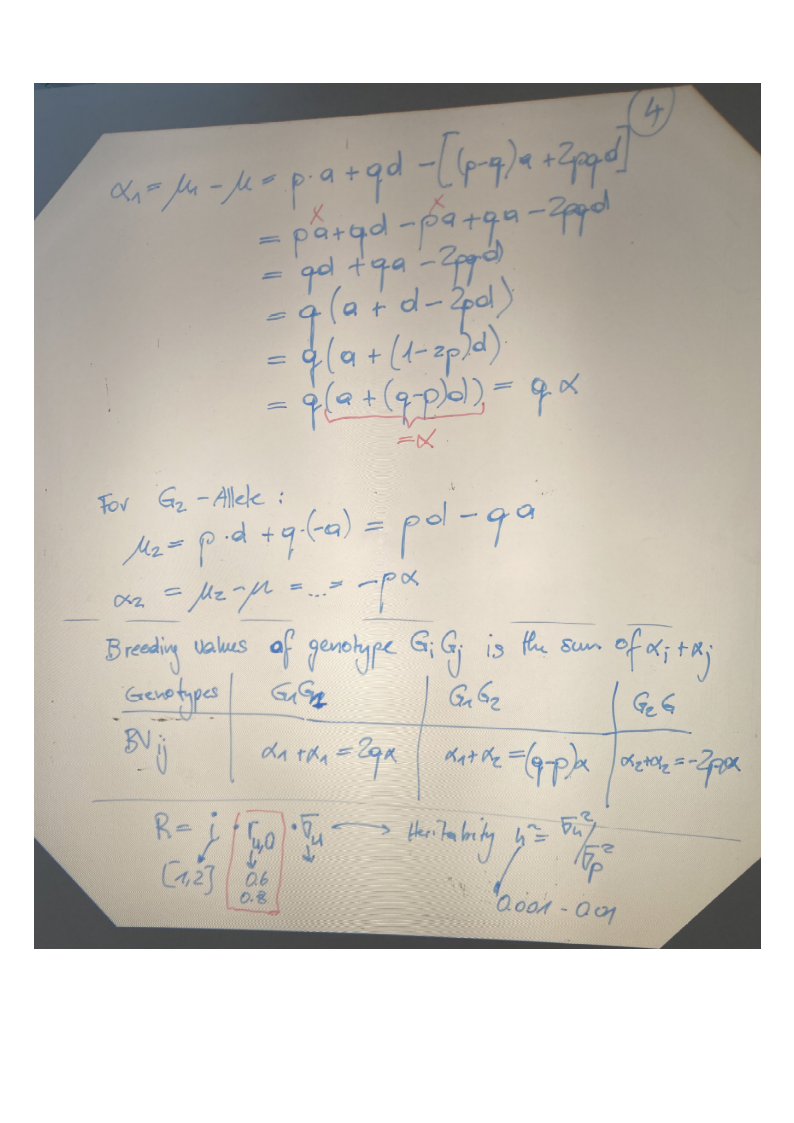 4
α₁ = μ₁ - μ = p·a + qd - [(p-q)a + 2pqd]
= pa + qd - pa + qa - 2pqd
= qd + qa - 2pqd
= q(a + d - 2pd)
= q(a + (1-2p)d)
= q(a + (q-p)d) = qα
= α
For G₂-Allele:
μ₂ = p·d + q·(-a) = pd - qa
α₂ = μ₂ - μ = ... = -pα
Breeding values of genotype GᵢGⱼ is the sum of αᵢ + αⱼ
Genotypes G₁G₁ G₁G₂ G₂G
BVᵢⱼ α₁ + α₁ = 2qα α₁ + α₂ = (q-p)α α₂ + α₂ = -2pα
R = i · r_u,û · σ_u ⟷ Heritability h² = σ_u² / σ_p²
[1,2] 0.6
0.8
0.001 - 0.01